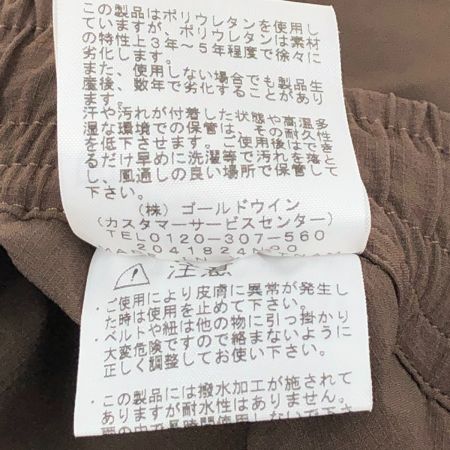 この製品はポリウレタンを使用し
ていますが、ポリウレタンは素材
の特性上3年～5年程度で徐々に
劣化します。
また、使用しない場合でも製品生
産後、数年で劣化することがあり
ます。
汗や汚れが付着した状態や高温多
湿な環境での保管は、その耐久性
を低下させます。ご使用後はでき
るだけ早めに洗濯等で汚れを落と
し、風通しの良い場所で保管して
下さい。
(株) ゴールドウイン
(カスタマーサービスセンター)
TEL0120-307-560
注意
・ご使用により皮膚に異常が発生し
た時は使用を止めて下さい。
・ベルトや紐は他の物に引っ掛かり
大変危険ですので絡まないように
正しく調整してお使い下さい。
・この製品には撥水加工が施されて
ありますが耐水性はありません。
雨の中で長時間使用しないで下